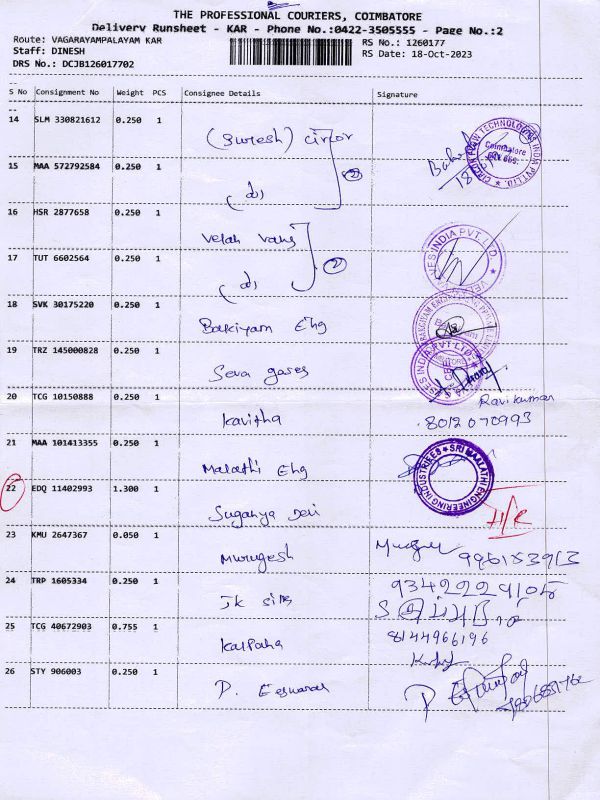 THE PROFESSIONAL COURIERS, COIMBATORE
Delivery Runsheet - KAR - Phone No.:0422-3505555 - Page No.:2
Route: VAGARAYAMPALAYAM KAR RS No.: 1260177
Staff: DINESH RS Date: 18-Oct-2023
DRS No.: DCJB126017702
S No Consignment No Weight PCS Consignee Details Signature
14 SLM 330821612 0.250 1 (Suresh) circor
15 MAA 572792584 0.250 1 (do) 2
16 HSR 2877658 0.250 1 Velan Valves
17 TUT 6602564 0.250 1 (do) 2
18 SVK 30175220 0.250 1 Bakiyam Eng
19 TRZ 145000828 0.250 1 Seva gases
20 TCG 10150888 0.250 1 Kavitha Ravikumar 8012070993
21 MAA 101413355 0.250 1 Malathi Eng SRI MAALATHI ENGINEERING INDUSTRIES
22 EDQ 11402993 1.300 1 Suganya Devi
23 KMU 2647367 0.050 1 Murugesh
24 TRP 1605334 0.250 1 JK silks
25 TCG 40672903 0.755 1 Kalpana 8144966196
26 STY 906003 0.250 1 D. Eeswaran